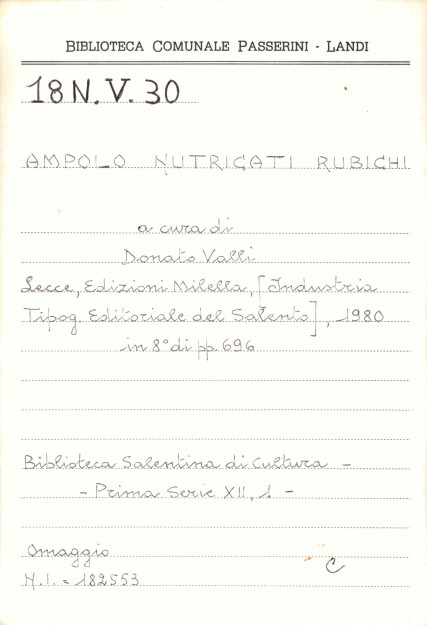 BIBLIOTECA COMUNALE PASSERINI - LANDI
18 N. V. 30
AMPOLO NUTRICATI RUBICHI
a cura di
Donato Valli
Lecce, Edizioni Milella, [Industria
Tipog. Editoriale del Salento], 1980
in 8° di pp. 696
Biblioteca Salentina di Cultura -
- Prima Serie XII, 1 -
Omaggio
C
N.I. = 182553